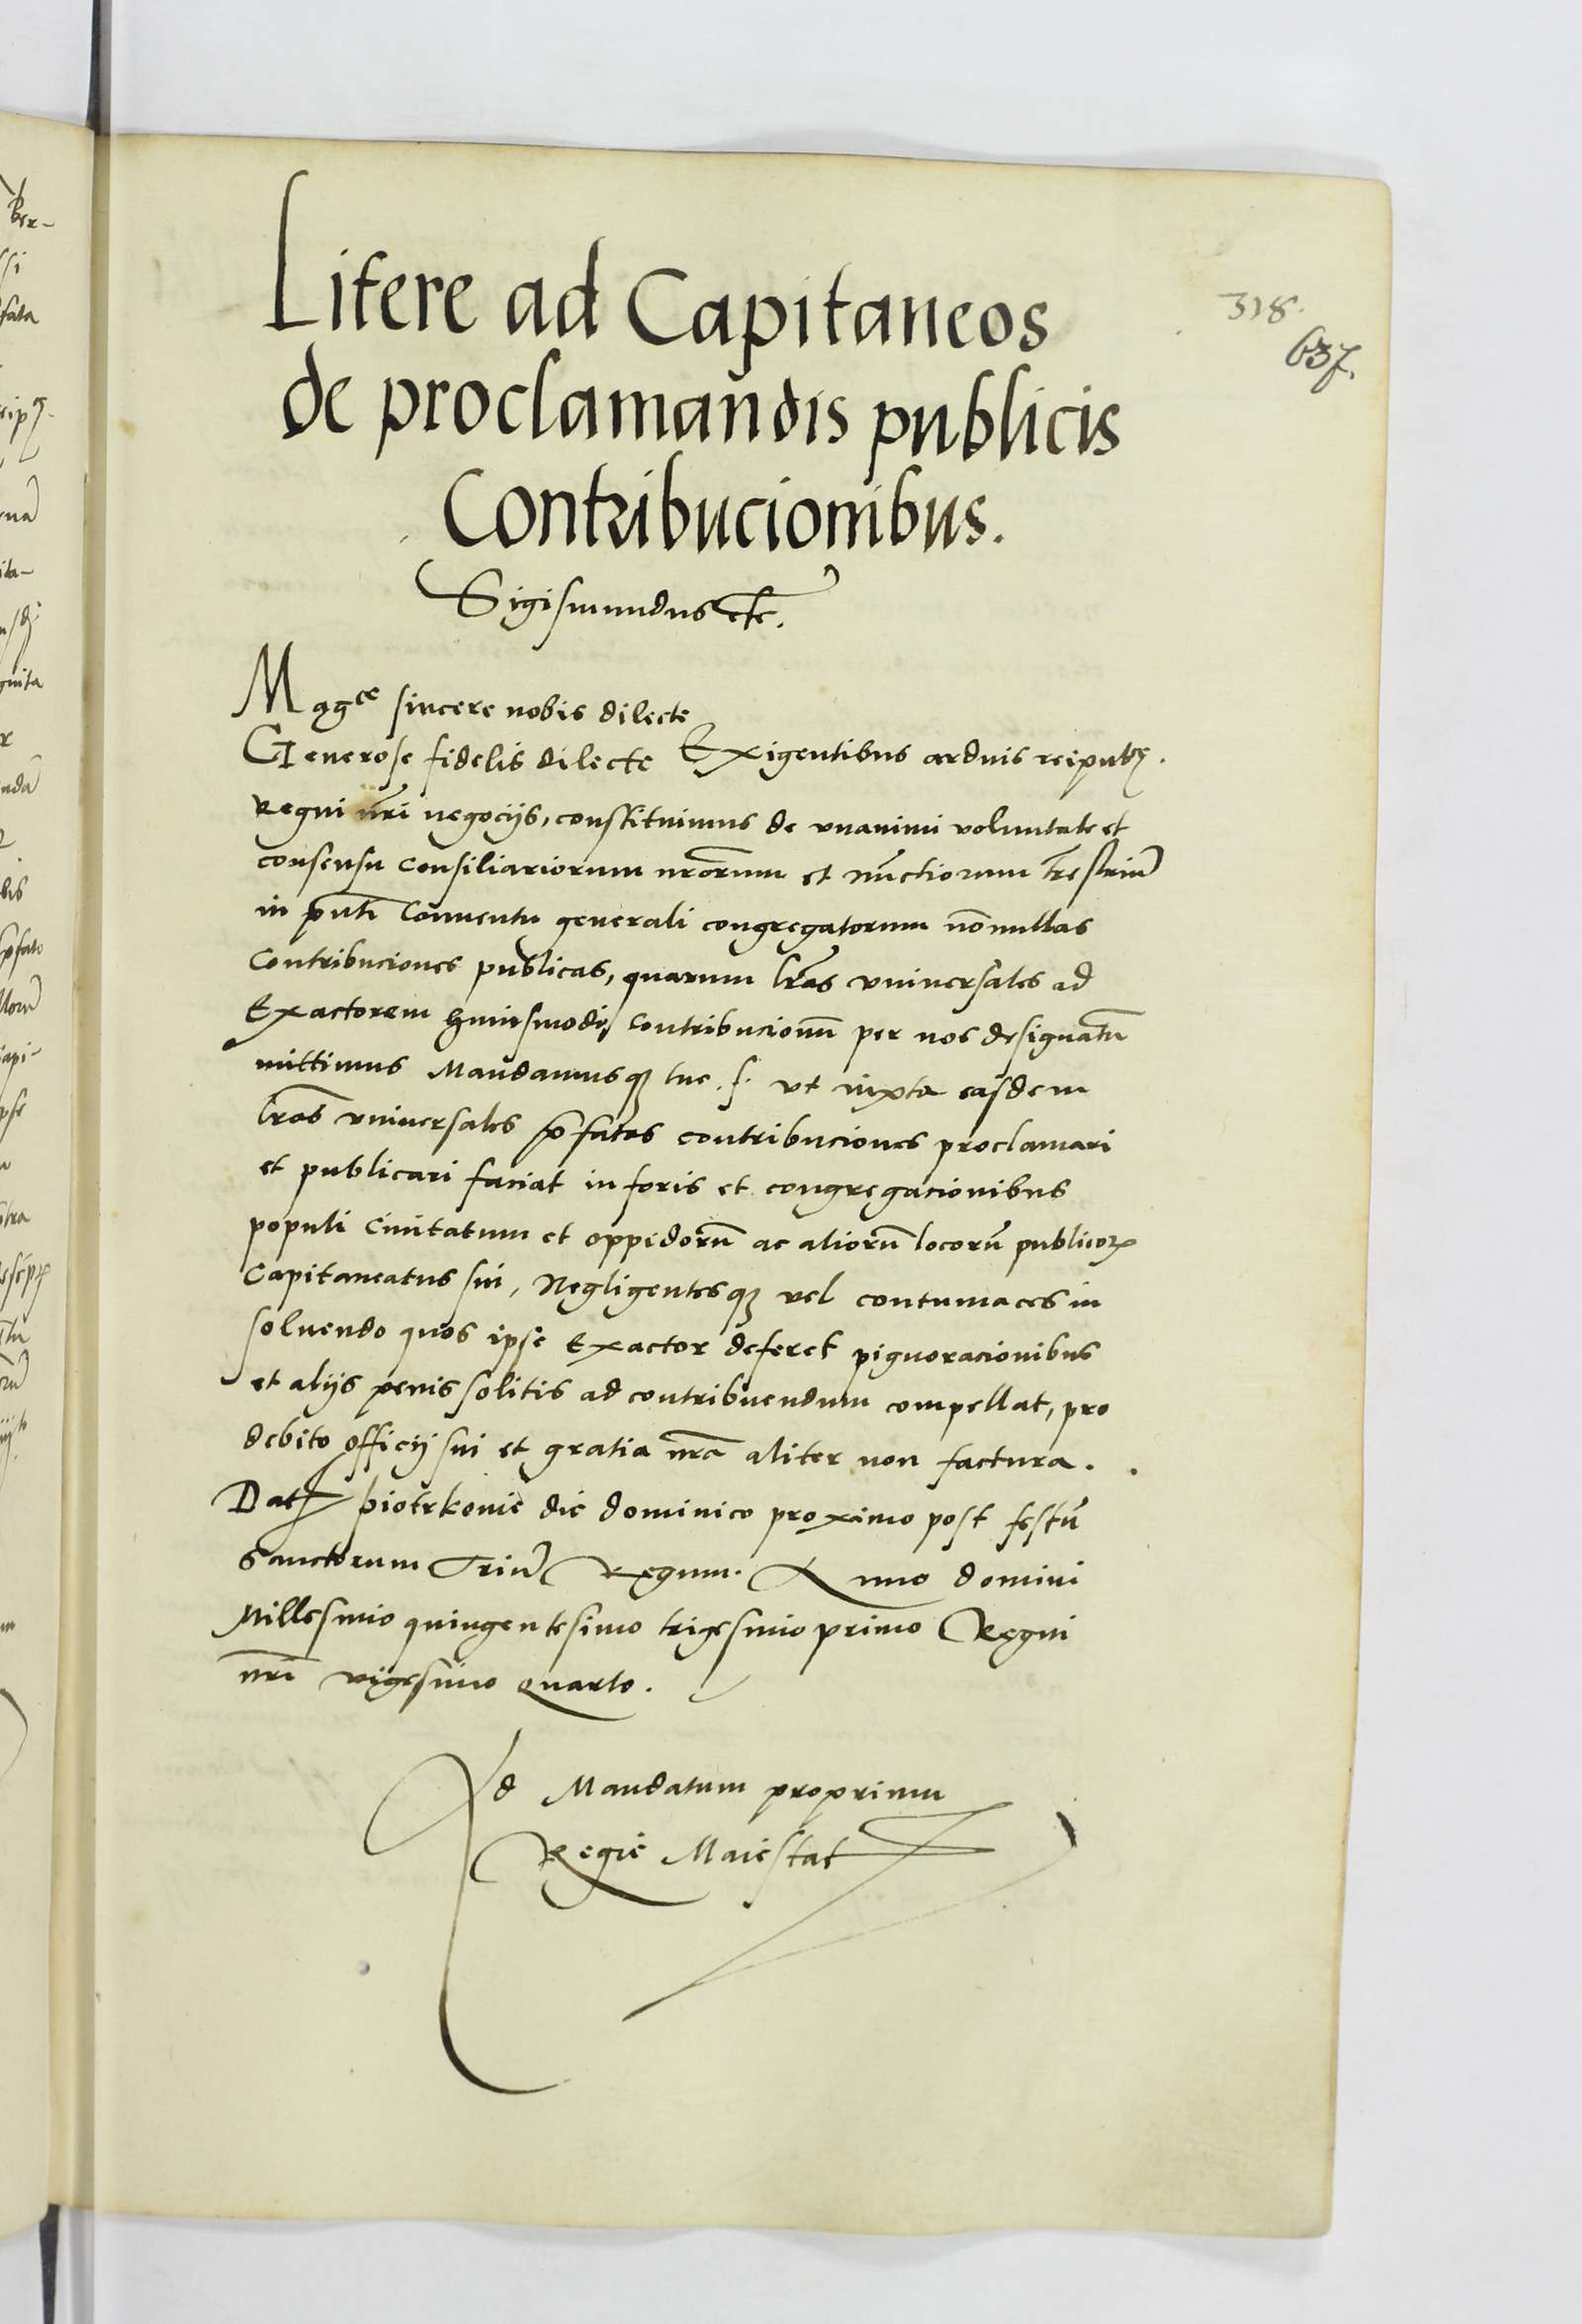 Litere ad Capitaneos
de proclamandis publicis
Contribucionibus.
318.
637.
Sigismundus etc.
Magce sincere nobis dilecte
Generose fidelis dilecte Exigentibus arduis reipub.
Regni nri negocijs, constituimus de vnanimi voluntate et
consensu Consiliariorum nrorum et nuctiorum trestriu
in pnti Conuentu generali congregatorum nonullas
Contribuciones publicas, quarum lras vniuersales ad
Exactorem huiusmodi contribucionu per nos designatu
mittimus Mandamusq tue. s. vt iuxta easdem
lras vniuersales pfatas contribuciones proclamari
et publicari faciat in foris et congregacionibus
populi Ciuitatum et oppidoru ac alioru locoru publicoꝝ
Capitaneatus sui, Negligentesq vel contumaces in
soluendo quos ipse Exactor deferet pignoracionibus
et alijs penis solitis ad contribuendum compellat, pro
debito officij sui et gratia nra aliter non factura.
Dat piotrkouie die dominico proximo post festu
Sanctorum Triu Regum. Anno domini
Millesimo quingentesimo trigesimo primo Regni
nri vigesimo quarto.
Ad Mandatum proprium
Regie Maiestat